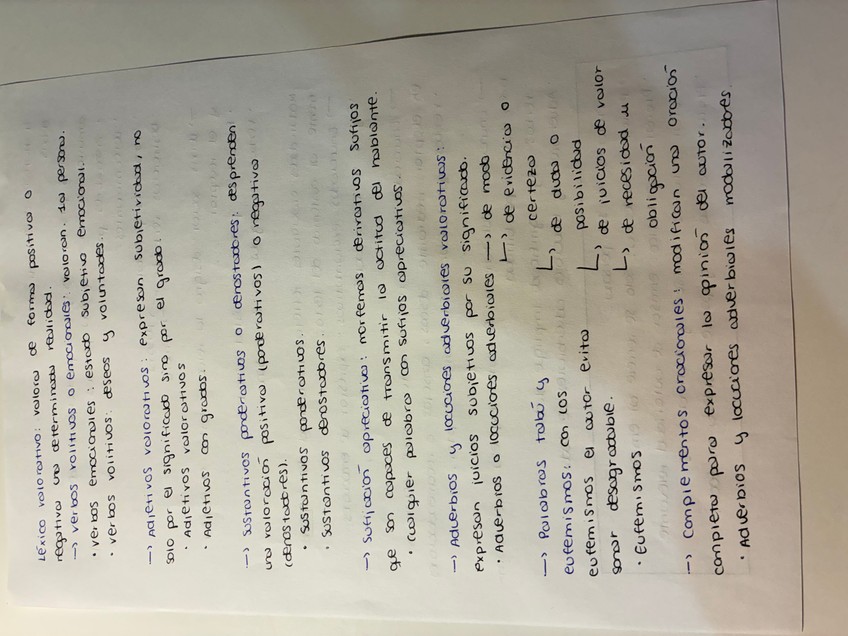 Léxico valorativo: valora de forma positiva o
negativa una determinada realidad.
→ Verbos volitivos o emocionales: valoran. 1a persona.
• Verbos emocionales: estado subjetivo emocional.
• Verbos volitivos: deseos y voluntades.
→ Adjetivos valorativos: expresan subjetividad, no
solo por el significado sino por el grado.
• Adjetivos valorativos
• Adjetivos con grados.
→ Sustantivos ponderativos o denostadores: desprenden
una valoración positiva (ponderativos) o negativa
(denostadores).
• Sustantivos ponderativos.
• Sustantivos denostadores.
→ Sufijación apreciativa: morfemas derivativos sufijos
que son capaces de transmitir la actitud del hablante.
• Cualquier palabra con sufijos apreciativos.
→ Adverbios y locuciones adverbiales valorativos:
expresan juicios subjetivos por su significado.
• Adverbios o locuciones adverbiales → de modo
↳ de evidencia o
certeza
↳ de duda o
posibilidad
↳ de juicios de valor
↳ de necesidad u
obligación
→ Palabras tabú y
eufemismos: con los
eufemismos el autor evita
sonar desagradable.
• Eufemismos
→ Complementos oracionales: modifican una oración
completa para expresar la opinión del autor.
• Adverbios y locuciones adverbiales modalizadores.